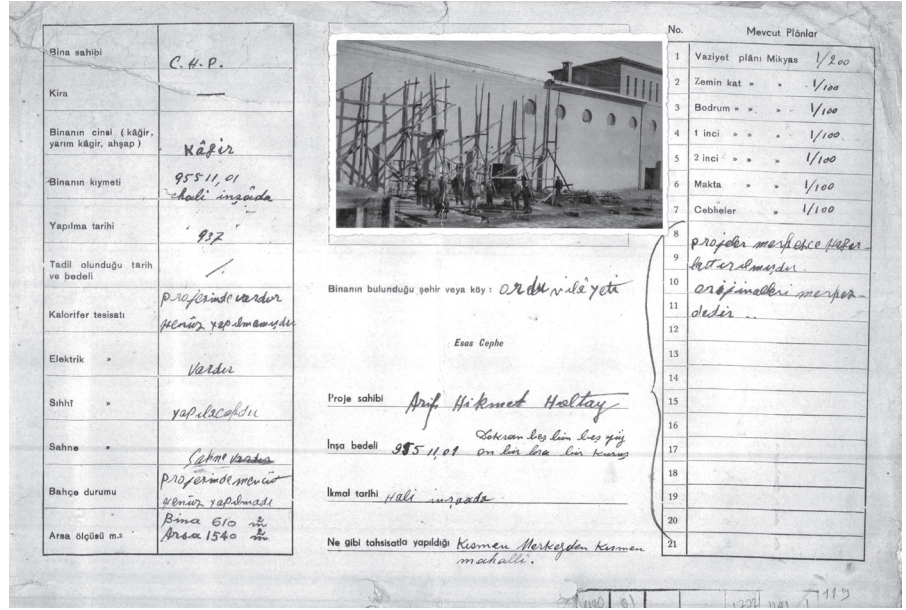 Bina sahibi C.H.P.
Kira —
Binanın cinsi (kâğir, yarım kâgir, ahşap) Kâgir
Binanın kıymeti 95511,01
hali inşâda
Yapılma tarihi 937
Tadil olunduğu tarih ve bedeli /
Kalorifer tesisatı projesinde vardır
Henüz yapılmamışdır
Elektrik » Vardır
Sıhhî » yapılacakdır
Sahne » Sahne vardır
Bahçe durumu projesinde mevcut
Henüz yapılmadı
Arsa ölçüsü m.2 Bina 610 m2
Arsa 1540 m2
Binanın bulunduğu şehir veya köy : Ordu vilâyeti
Esas Cephe
Proje sahibi Arif Hikmet Holtay
İnşa bedeli 95511,01 Doksan beş bin beş yüz
on bir lira bir kuruş
İkmal tarihi Hali inşaada
Ne gibi tahsisatla yapıldığı Kısmen Merkezden Kısmen
mahalli.
No. Mevcut Plânlar
1 Vaziyet plânı Mikyas 1/200
2 Zemin kat » » 1/100
3 Bodrum » » 1/100
4 1 inci » » » 1/100
5 2 inci » » » 1/100
6 Makta » » 1/100
7 Cebheler » 1/100
8 projeler merkezce
9
10 orojinalleri merkez-
11 dedir ..
12
13
14
15
16
17
18
19
20
21
119